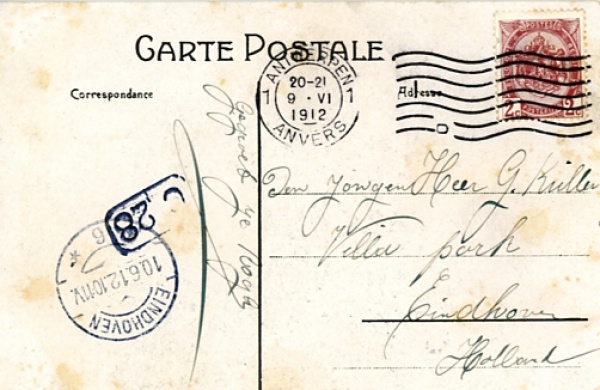 CARTE POSTALE
Correspondance
Adresse
ANTWERPEN
1 20-21 1
9 · VI
1912
ANVERS
2c 2c
Den Jongen Heer G. Küller
Villa park
Eindhoven
Holland
28
EINDHOVEN
10.6.12.10-11V.